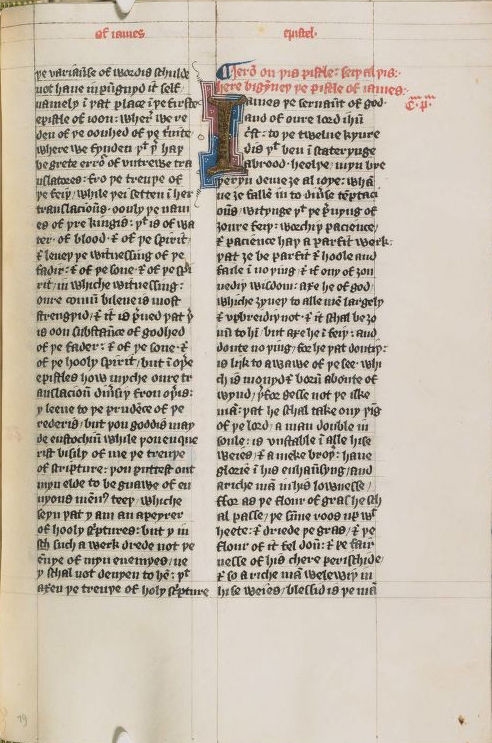 of iames
epistel·
þe variaũse of wordis schulde
not haue inpugnyd it self
namely i þat place i þe firste
epistle of ioon: wher we re
den of þe oonhed of þe t'nite
where we fynden þt þ hap
be grete erro' of vntrewe tra
nslatores: fro þe treuþe of
þe feiþ/ while þei setten i her
translacioũs· oonly þe nam
es of þre kingis: þt is of wa
ter· of blood· ⁊ of þe spirit/
⁊ leueþ þe witnessing of þe
fadir: ⁊ of þe sone· ⁊ of þe spi
rit/ in whiche witnessing:
oure comũ bileue is most
strengþid/ ⁊ it is p'ued þat þ
is oon substãnce of godhed
of þe fader: ⁊ of þe sone· ⁊
of þe hooly spirit/ but i oþe
epistles how myche oure tr
anslacioũ diũsiþ from oþis:
y leeue to þe prudẽce of þe
rederis/ but þou goddis may
de eustochiũ while þou enque
rist bisily of me þe treuþe
of scripture: þou puttest out
myn elde to be gnawe of en
uyous menñ' teeþ/ whiche
seyn þat y am an apeyrer
of hooly sc'pturis: but y in
sch such a werk drede not þe
ẽuye of myn enemyes/ ne
y schal not denyen to hẽ: þt
axen þe treuþe of holy sc'pture
Ierõ on þis pistle: seiþ al þis:·
here bigỹneþ þe pistle of iames:
Iames þe seruaũt of god·
and of oure lord ihũ
c'st: to þe twelue kynre
dis þt ben i scateryngę
abrood· heelþe/ myn bre
þeryn deme ȝe al ioye: whã
ne ȝe falle in to diũse tẽptaci
oũs/ witynge þt þe p'uyng of
ȝoure feiþ: worchiþ pacience/
⁊ pacience haþ a parfit werk·
þat ȝe be parfit ⁊ hoole and
faile i no þing/ ⁊ if ony of ȝou
nediþ wisdom: axe he of god/
whiche ȝyueþ to alle mẽ largely
⁊ vpbreidiþ not· ⁊ it schal be ȝo
uũ to hĩ/ but axe he i feiþ: and
doute no þing/ for he þat doutiþ:
is lijk to a wawe of þe see· whi
ch is mouyd ⁊ born aboute of
wynd/ þ'for gesse not þe ilke
mã: þat he schal take ony þĩg
of þe lord/ a man double in
soule: is vnstable i alle hise
weies/ ⁊ a meke broþ': haue
glorie i his enhaũsyng/ and
a riche mã in his lownesse/
for as þe flour of gras he sch
al passe/ þe sũne roos up wt
heete: ⁊ driede þe gras/ ⁊ þe
flour of it fel doũ: ⁊ þe fair
nesse of his chere perischide/
⁊ so a riche mã welewiþ in
hise weies/ blessid is þe mã